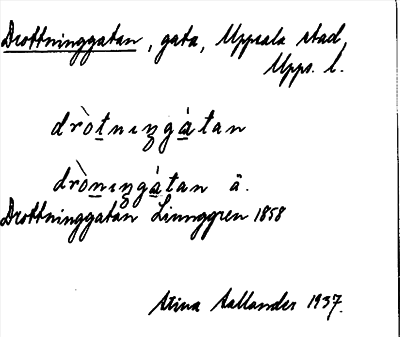 Drottninggatan, gata, Uppsala stad,
Upps. l.
dròt̲nıŋgá̲tan
dròn̲ıŋgá̲tan ä.
Drottninggatan Linnggren 1858
Stina Hallander 1937.